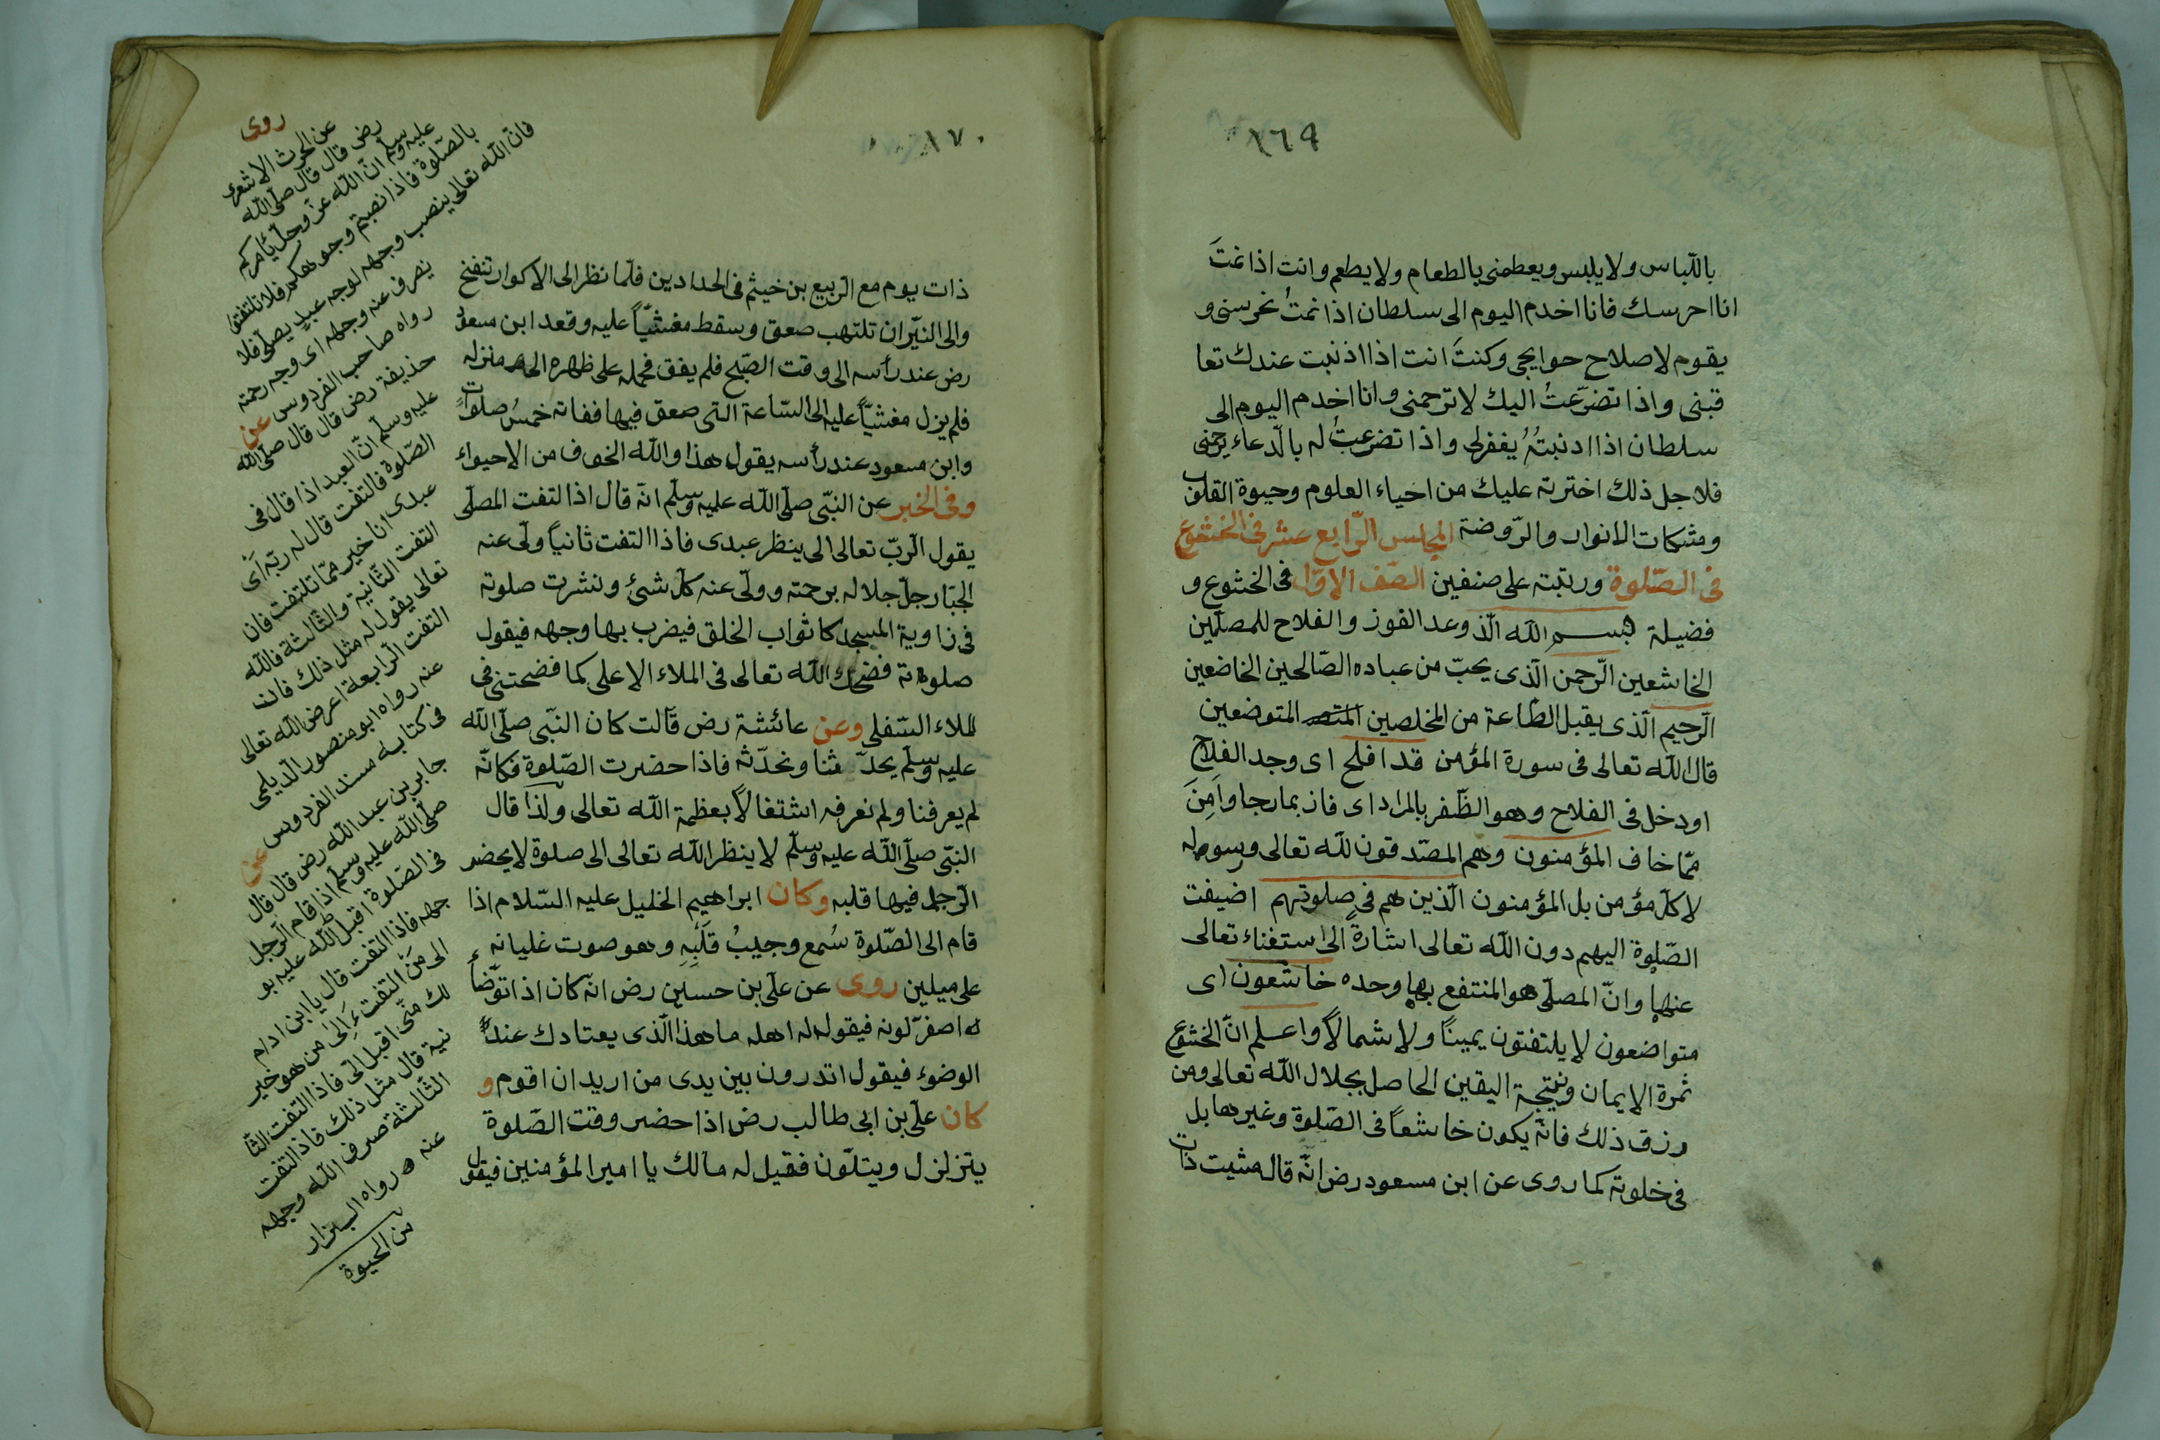 ١٦٩
باللّباس ولا يلبس ويعطمنى بالطعام ولا يطعم وانت اذا نمتَ
انا احرسك فانا اخدم اليوم الى سلطان اذا نمتُ تحرسنى و
يقوم لاصلاح حوايجى وكنتَ انت اذا اذنبت عندك تعا
قبنى واذا تضرّعتُ اليك لا ترحمنى وانا اخدم اليوم الى
سلطان اذا اذنبتُ يغفرلى واذا تضرعتُ له بالدّعاء يرحمنى
فلاجل ذلك اخترته عليك من احياء العلوم وحيوة القلوب
ومشكات الانوار والرّوضة المجلس الرّابع عشر فى الخشوع
فى الصّلوة ورتبته على صنفين الصّف الاوّل فى الخشوع و
فضيلة بسم الله الّذ وعد الفوز والفلاح للمصلّين
الخاشعين الرّحمن الّذى يحبّ من عباده الصّالحين الخاضعين
الرّحيم الّذى يقبل الطّاعة من المخلصين المتوضعين
قال الله تعالى فى سورة المؤمن قد افلح اى وجد الفلاح
اودخل فى الفلاح وهو الظّفر بالمراد اى فاز بما رجا واَمِنَ
ممّا خاف المؤمنون وهم المصّدقون لله تعالى ورسوله
لا كلّ مؤمن بل المؤمنون الّذين هم فى صلوتهم اضيفت
الصّلوة اليهم دون الله تعالى اشارةً الى استغناء تعالى
عنها وانّ المصلّى هو المنتفع بها وحده خاشعون اى
متواضعون لا يلتفتون يمينًا ولا شمالًا واعلم انّ الخشوع
ثمرة الايمان ونتيجة اليقين الحاصل بجلال الله تعالى ومن
رزق ذلك فانّه يكون خاشعاً فى الصّلوة وغيرها بل
فى خلوته كما روى عن ابن مسعود رض انّه قال مشيت ذات
١٧٠
ذات يوم مع الرّبيع بن خيثم فى الحدادين فلّما نظر الى الاكوار تنفخ
والى النيّران تلتهب صعق وسقط مغشيّاً عليه وقعد ابن مسعود
رض عند رأسه الى وقت الصّبح فلم يفق فحمله على ظهره الى منزله
فلم يزل مغشيّاً عليه الى السّاعة التى صعق فيها ففاته خمسُ صلوات
وابن مسعود عند رأسه يقول هذا والله الخوف من الاحيواء
وفى الخبر عن النبّى صلّى الله عليه وسلّم انّه قال اذا التفت المصلّى
يقول الرّبّ تعالى الى ينظر عبدى فاذا التفت ثانياً ولّى عنه
الجبّار جلّ جلاله برحمته وولّى عنه كلّ شئ ونشرت صلوته
فى زاوية المسجد كاثواب الخلق فيضرب بها وجهه فيقول
صلوته فضحك الله تعالى فى الملاء الاعلى كما فضحتنى فى
الملاء السّفلى وعن عائشة رض قالت كان النبّى صلّى الله
عليه وسلّم يحدّثنا ونحدّثه فاذا حضرت الصّلوة فكانّه
لم يعرفنا ولم نعرفه اشتغالاً بعظمة الله تعالى ولذا قال
النبّى صلّى الله عليه وسلّم لا ينظر الله تعالى الى صلوة لا يحضر
الرّجل فيها قلبه وكان ابراهيم الخليل عليه السّلام اذا
قام الى الصّلوة سُمع وجيبُ قَلْبِهِ وهو صوت غليانه
على ميلين روى عن علّى بن حسين رض انّه كان اذا توّضأ
اصفرّ لونه فيقول له اهله ما هذا الّذى يعتادك عند
الوضوء فيقول اتدرون بين يدى من اريد ان اقوم و
كان علّى بن ابى طالب رض اذا حضر وقت الصّلوة
يتزلزل ويتلّون فقيل له مالك يا امير المؤمنين فيقول
روى
عن الحرث الاشعرى
رض قال قال صلّى الله
عليه وسلّم انّ الله عزّ وجلّ يأمركم
بالصّلوة فاذا نصبتم وجوهكم فلا تلتفتوا
فانّ الله تعالى ينصب وجهه لوجه عبدٍ يصلّى فلا
يصرف عنه وجهه اى وجه رحمته
رواه صاحب الفردوس عن
حذيفة رض قال قال صلّى الله
عليه وسلّم انّ العبد اذا قال فى
الصّلوة فالتفت قال له ربّه اَى
عبدى انا خير ممّا تلتفت فان
التفت الثّانية والثّالثة فالله
تعالى يقول له مثل ذلك فان
التفت الرّابعة اعرض الله تعالى
عنه رواه ابو منصور الدّيلمى
فى كتابه مسند الفردوس عن
جابر بن عبد الله رض قال قال
صلّى الله عليه وسلّم اذا قام الرّجل
فى الصّلوة اقبل الله عليه بو
جهه فاذا التفت قال يا ابن ادم
الى مَنْ التفت ءَ اِلى من هو خير
لك منّى اقبل الىّ فاذا التفت الثّا
نية قال مثل ذلك فاذا التفت
الثّالثة صرف الله وجهه
عنه رواه البزار
من الحيوة